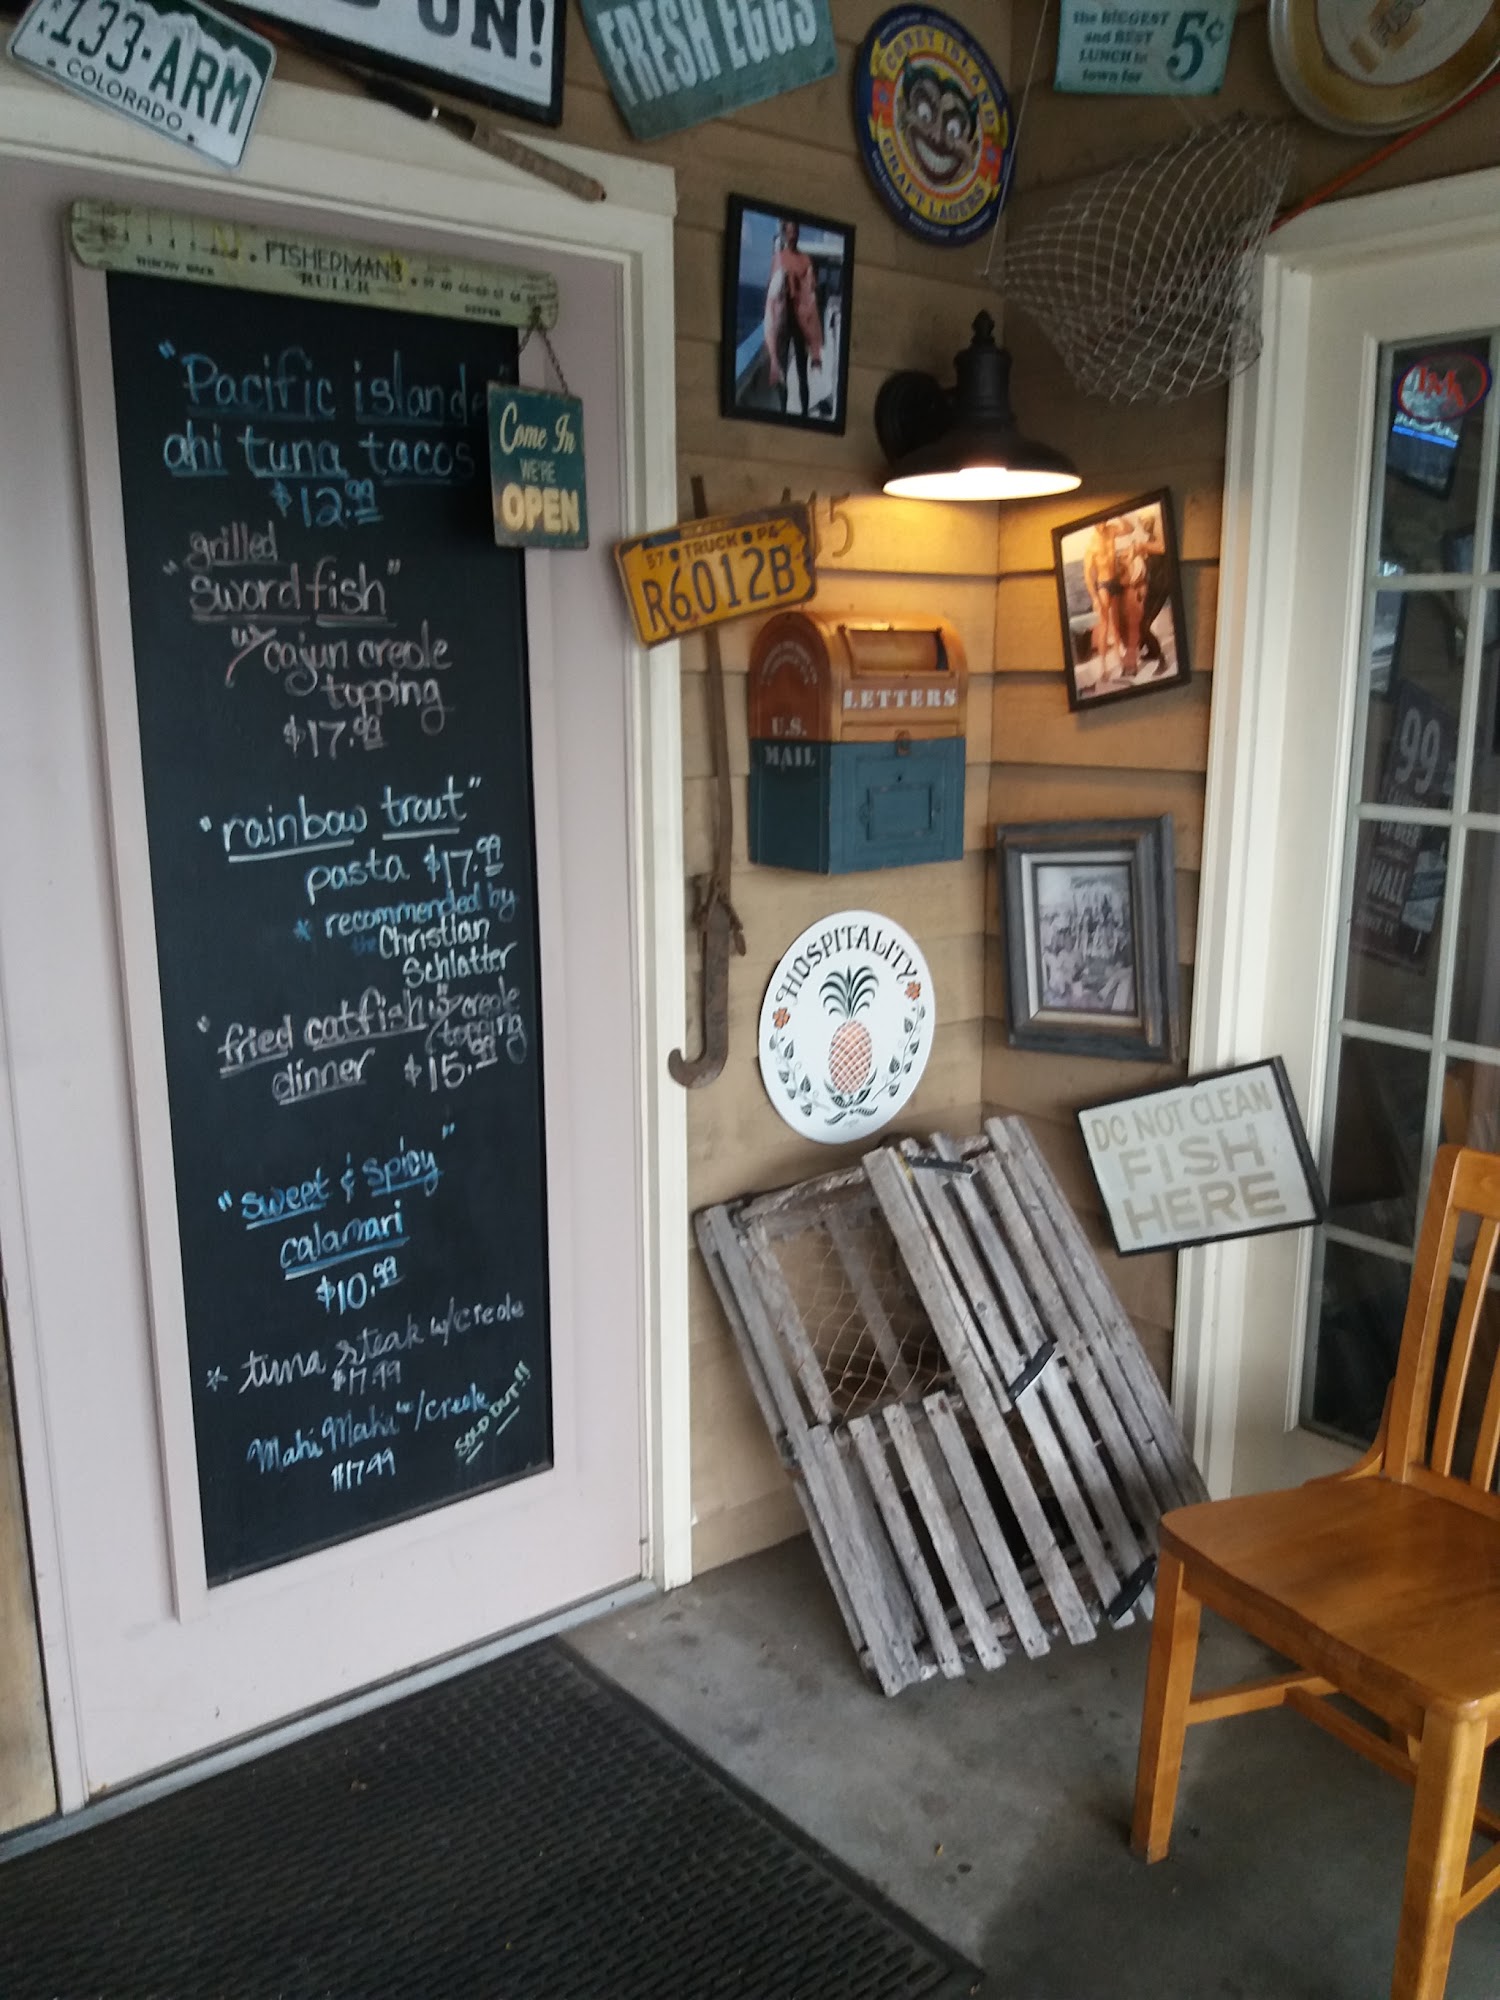 133-ARM
COLORADO
UN!
FRESH EGGS
CONEY ISLAND
CRAFT LAGERS
the BIGGEST
and BEST
LUNCH in
town for
5¢
THROW BACK
FISHERMAN'S
RULER
KEEPER
"Pacific island
ahi tuna tacos
$12.99
Come In
WE'RE
OPEN
grilled
"swordfish"
w/ cajun creole
topping
$17.99
"rainbow trout"
pasta $17.99
* recommended by
the Christian
Schlatter
"fried catfish" w/ creole
topping
dinner $15.99
"sweet & spicy"
calamari
$10.99
* tuna steak w/creole
$17.99
Mahi Mahi w/creole
$17.99
SOLD OUT!!
57 TRUCK PA
R6012B
LETTERS
U.S.
MAIL
HOSPITALITY
DO NOT CLEAN
FISH
HERE
99
WALL